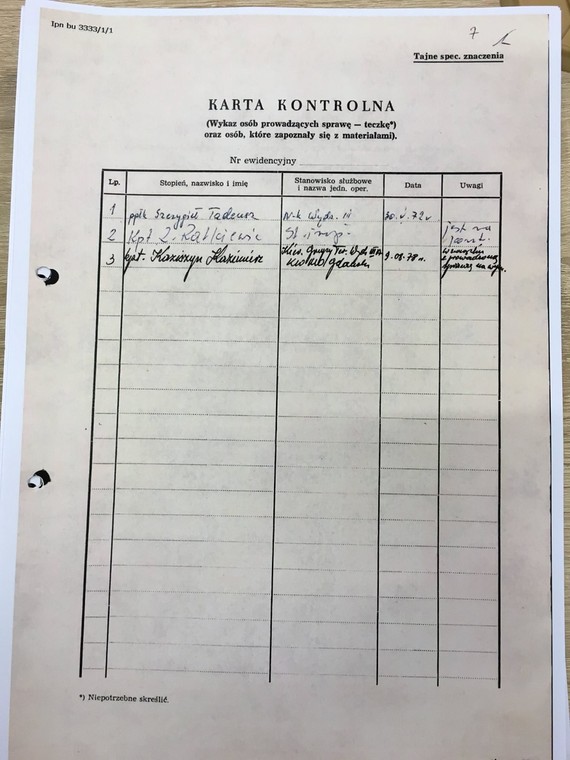 Ipn bu 3333/1/1
7
1
Tajne spec. znaczenia
KARTA KONTROLNA
(Wykaz osób prowadzących sprawę — teczkę*)
oraz osób, które zapoznały się z materiałami).
Nr ewidencyjny
Lp. Stopień, nazwisko i imię Stanowisko służbowe i nazwa jedn. oper. Data Uwagi
1 ppłk Szczygieł Tadeusz N-k Wydz. 30.V.72r
2 Kpt Z. St. insp. jest na
3 kpt. Kazimierz Kier. Grupy 9.01.78r.
*) Niepotrzebne skreślić.